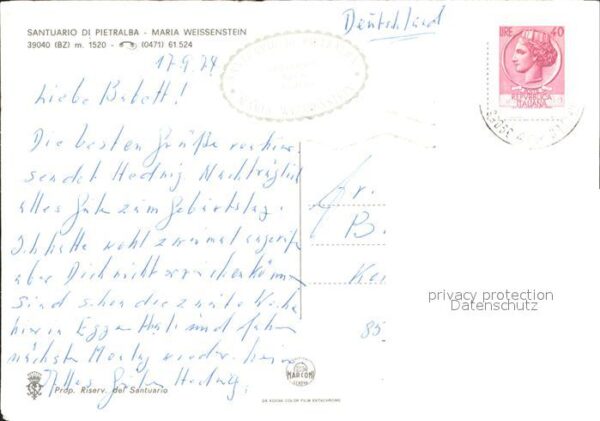 SANTUARIO DI PIETRALBA - MARIA WEISSENSTEIN
39040 (BZ) m. 1520 - (0471) 61.524
Deutschland
LIRE 40
REPUBBLICA
ITALIANA
17.9.74
Liebe Babett!
Die besten Grüße von hier
sendet Hedwig. Nachträglich
alles Gute zum Geburtstag.
Ich hatte wohl zweimal angerufen
aber Dich nicht erreichen können
sind schon die zweite Woche
hier in Eggen Hali und fahren
nächsten Montag wieder heim
Alles Gute Hedwig.
B.
85
privacy protection
Datenschutz
MARCONI
Prop. Riserv. del Santuario
DA KODAK COLOR FILM EKTACHROME